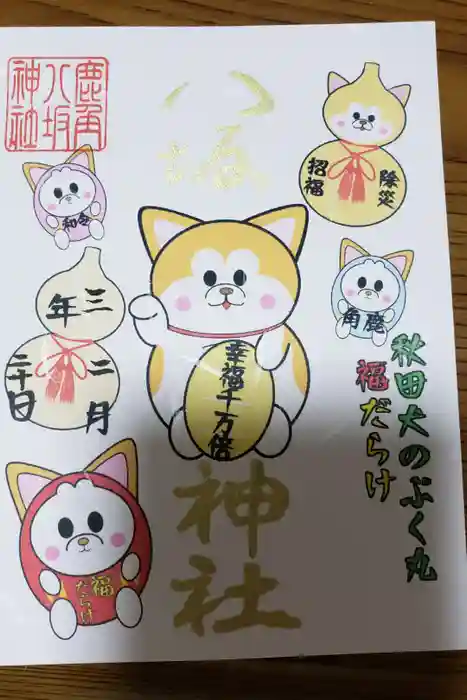 鹿角
八坂
神社
八坂
神社
除災
招福
令和
三年
二月
二十日
鹿角
幸福千万倍
秋田犬のぷく丸
福だらけ
福
だらけ